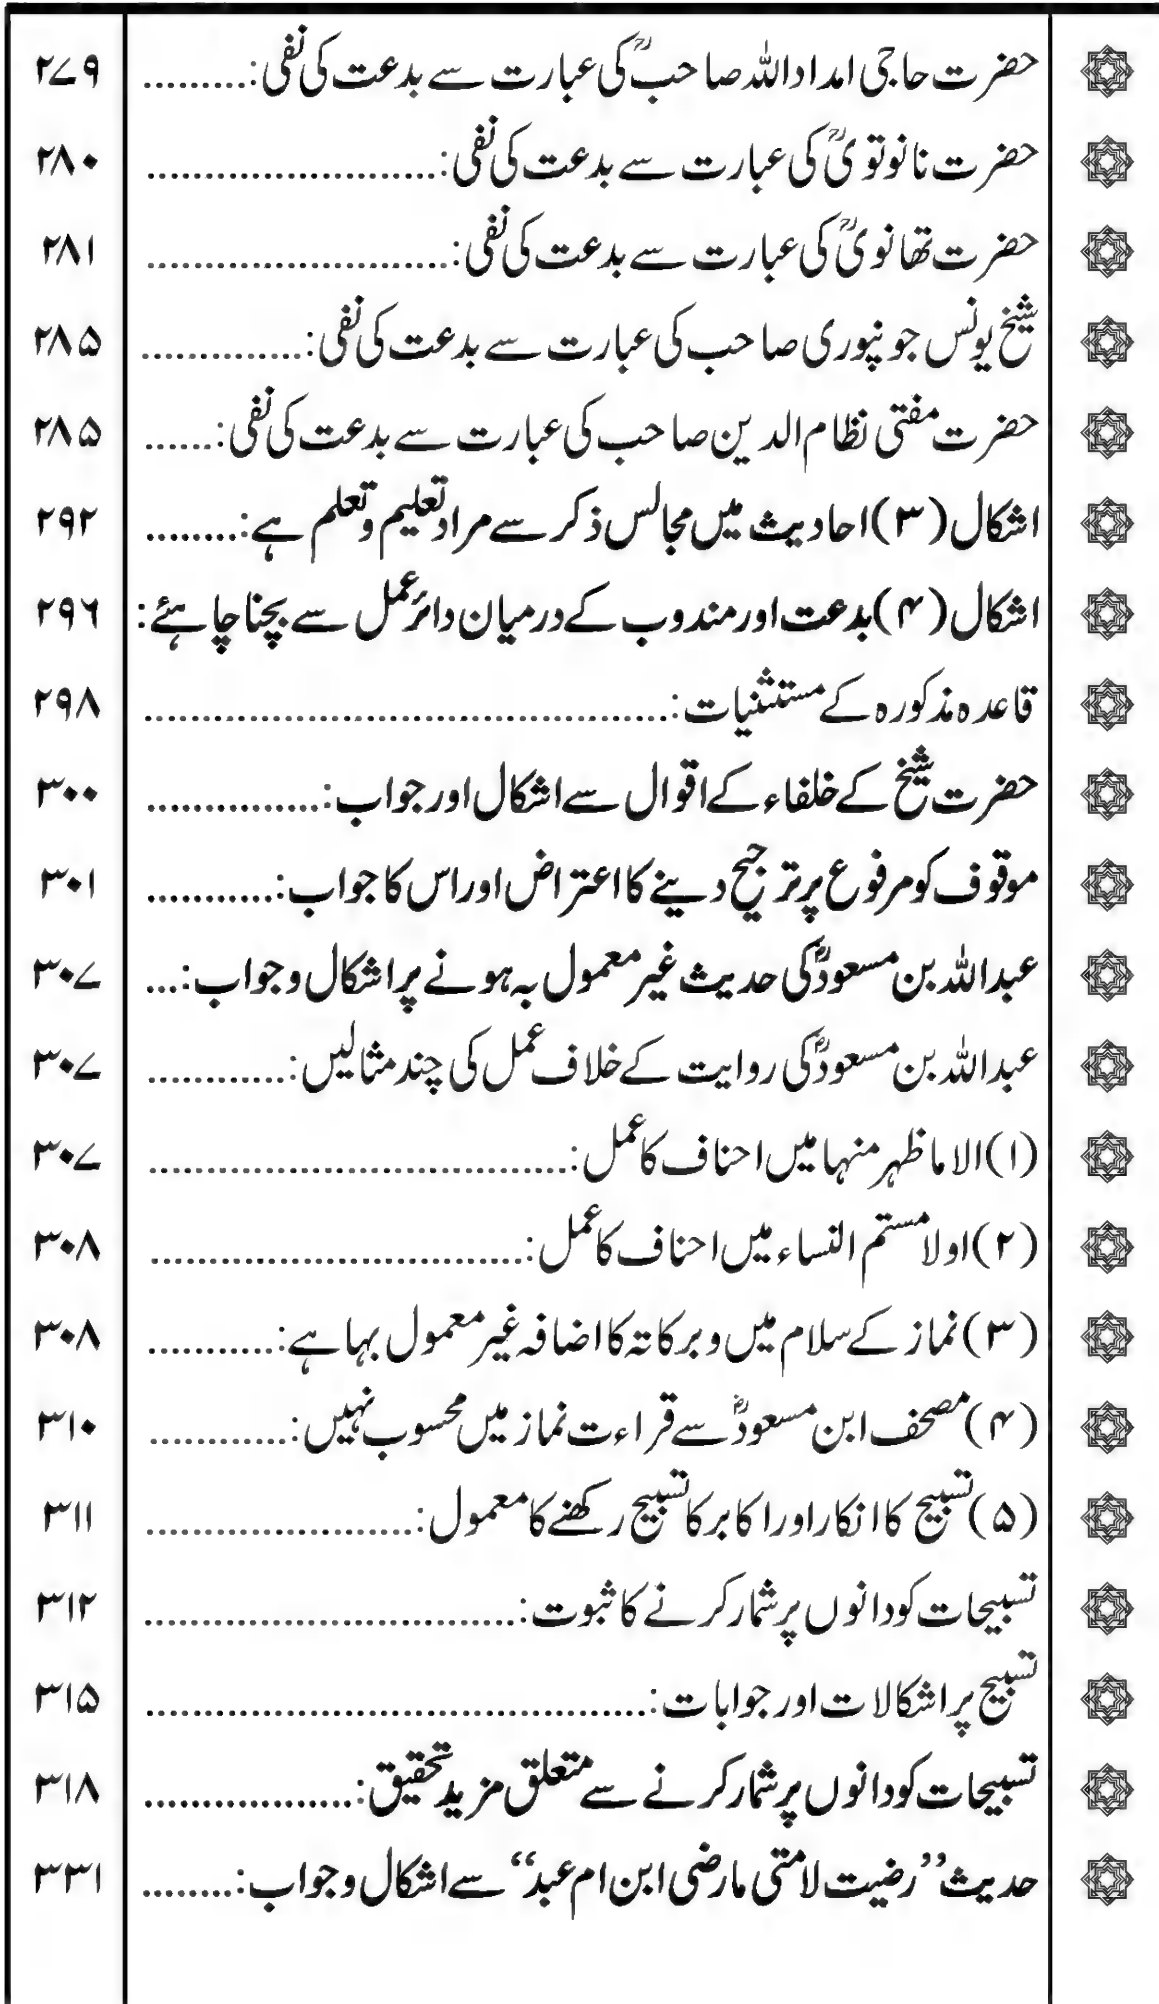 حضرت حاجی امداد اللہ صاحبؒ کی عبارت سے بدعت کی نفی:......... ۲۷۹
حضرت نانوتویؒ کی عبارت سے بدعت کی نفی:......................... ۲۸۰
حضرت تھانویؒ کی عبارت سے بدعت کی نفی:.......................... ۲۸۱
شیخ یونس جونپوری صاحب کی عبارت سے بدعت کی نفی:.............. ۲۸۵
حضرت مفتی نظام الدین صاحب کی عبارت سے بدعت کی نفی:...... ۲۸۵
اشکال (۳) احادیث میں مجالس ذکر سے مراد تعلیم وتعلم ہے:........ ۲۹۲
اشکال (۴) بدعت اور مندوب کے درمیان دائر عمل سے بچنا چاہئے: ۲۹۶
قاعدہ مذکورہ کے مستثنیات:.............................................. ۲۹۸
حضرت شیخ کے خلفاء کے اقوال سے اشکال اور جواب:............... ۳۰۰
موقوف کو مرفوع پر ترجیح دینے کا اعتراض اور اس کا جواب:........... ۳۰۱
عبداللہ بن مسعودؓ کی حدیث غیر معمول بہ ہونے پر اشکال وجواب:... ۳۰۷
عبداللہ بن مسعودؓ کی روایت کے خلاف عمل کی چند مثالیں:............ ۳۰۷
(۱) الا ما ظہر منہا میں احناف کا عمل:.................................... ۳۰۷
(۲) او لامستم النساء میں احناف کا عمل:................................ ۳۰۸
(۳) نماز کے سلام میں وبرکاتہ کا اضافہ غیر معمول بہا ہے:........... ۳۰۸
(۴) مصحف ابن مسعودؓ سے قراءت نماز میں محسوب نہیں:............ ۳۱۰
(۵) تسبیح کا انکار اور اکابر کا تسبیح رکھنے کا معمول:....................... ۳۱۱
تسبیحات کو دانوں پر شمار کرنے کا ثبوت:................................ ۳۱۲
تسبیح پر اشکالات اور جوابات:........................................... ۳۱۵
تسبیحات کو دانوں پر شمار کرنے سے متعلق مزید تحقیق:.................. ۳۱۸
حدیث ’’رضیت لامتی ما رضی ابن ام عبد‘‘ سے اشکال وجواب:........ ۳۳۱